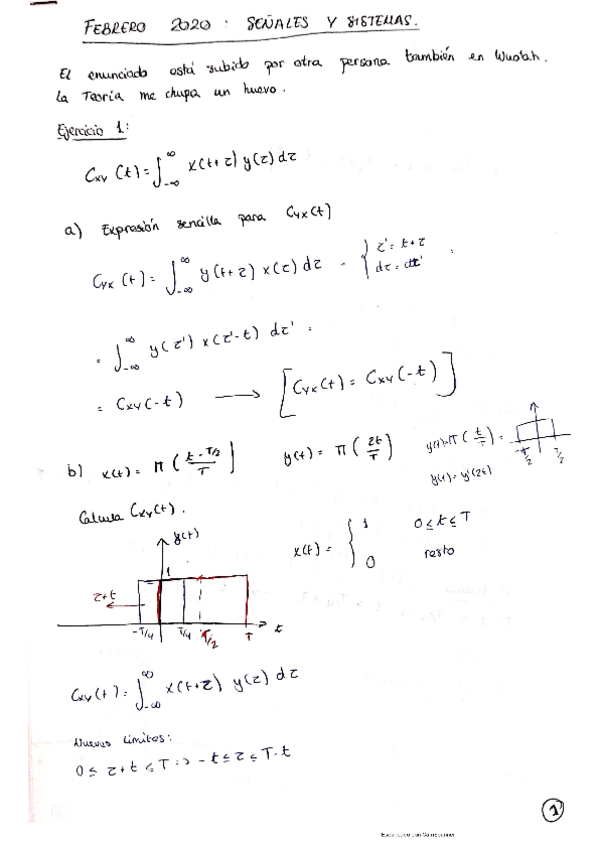 FEBRERO 2020: SEÑALES Y SISTEMAS.
El enunciado está subido por otra persona también en Wuolah.
La Teoría me chupa un huevo.
Ejercicio 1:
Cxy (t) = ∫_{-∞}^{∞} x(t+z) y(z) dz
a) Expresión sencilla para Cyx(t)
Cyx (t) = ∫_{-∞}^{∞} y(t+z) x(z) dz = { z' = t+z
dz = dz'
= ∫_{-∞}^{∞} y(z') x(z'-t) dz' =
= Cxy(-t) → [Cyx(t) = Cxy(-t)]
b) x(t) = Π((t - T/2)/T) y(t) = Π(2t/T) y'(t) = Π(t/T) =
-T/2 T/2
y(t) = y'(2t)
Calcula Cxy(t).
x(t) = { 1 0 ≤ t ≤ T
0 resto
y(t)
1
z+t
-T/4 T/4 T/2 T t
Cxy(t) = ∫_{-∞}^{∞} x(t+z) y(z) dz
Nuevos límites:
0 ≤ z+t ≤ T => -t ≤ z ≤ T-t
1